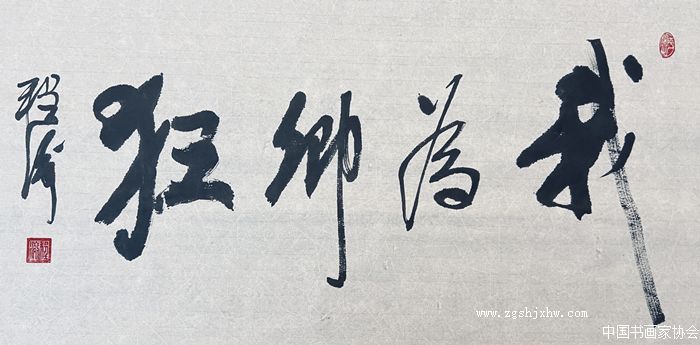 我為卿狂
www.zgshjxhw.com
中国书画家协会